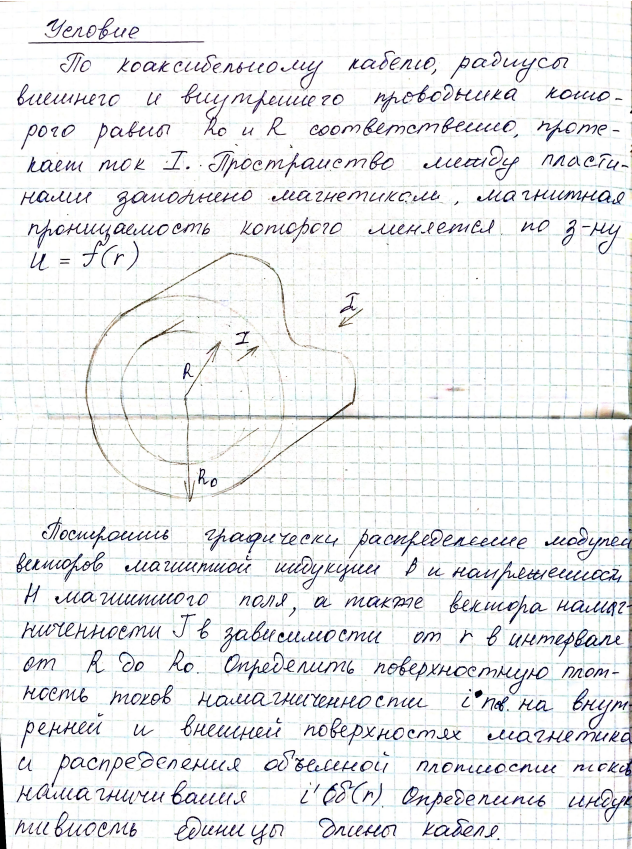 Условие
По коаксибельному кабелю, радиусы
внешнего и внутреннего проводника кото-
рого равны R₀ и R соответственно, проте-
кает ток I. Пространство между пласти-
нами заполнено магнетиком, магнитная
проницаемость которого меняется по з-ну
μ = f(r)
I
I
R
R₀
Построить графически распределение модулей
векторов магнитной индукции B и напряженности
H магнитного поля, а также вектора намаг-
ниченности J в зависимости от r в интервале
от R до R₀. Определить поверхностную плот-
ность токов намагниченности i'пов. на внут-
ренней и внешней поверхностях магнетика
и распределения объемной плотности токов
намагничивания i'об(r). Определить индук-
тивность единицы длины кабеля.